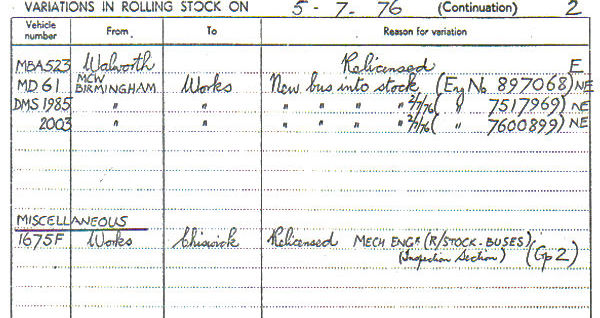 VARIATIONS IN ROLLING STOCK ON 5 - 7. 76 (Continuation) 2
Vehicle number From To Reason for variation
MBA523 Walworth Relicensed E
MD 61 MCW BIRMINGHAM Works New bus into stock (Eng No 897068) NE
DMS 1985 " " " " " " 2/7/76 ( " 7517969) NE
2003 " " " " " " 2/7/76 ( " 7600899) NE
MISCELLANEOUS
1675F Works Chiswick Relicensed MECH ENGR (R/STOCK-BUSES)
(Inspection Section) (Gp 2)